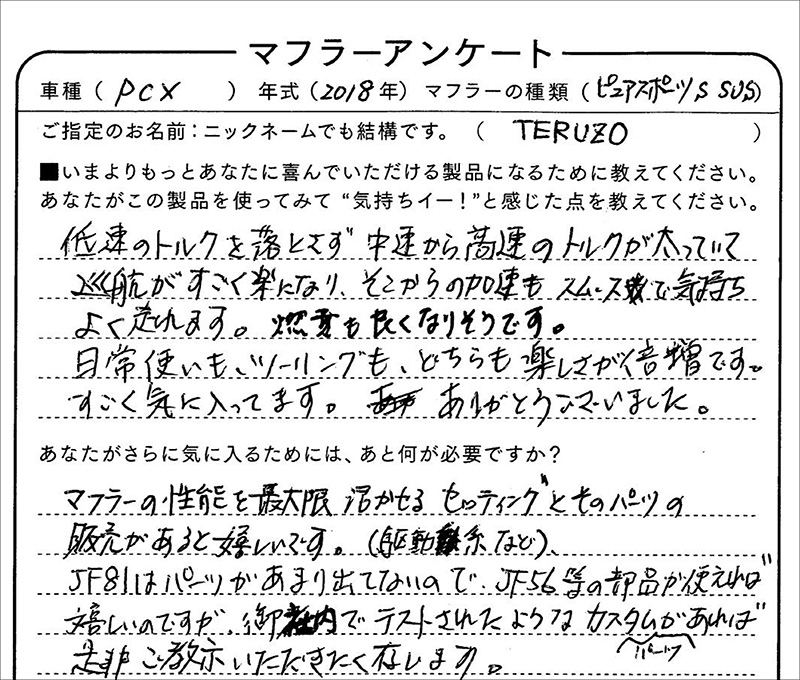 マフラーアンケート
車種（ PCX ） 年式（2018年） マフラーの種類（ピュアスポーツS SUS）
ご指定のお名前：ニックネームでも結構です。（ TERUZO ）
■いまよりもっとあなたに喜んでいただける製品になるために教えてください。
あなたがこの製品を使ってみて“気持ちイー！”と感じた点を教えてください。
低速のトルクを落とさず 中速から高速のトルクが太っていて
巡航がすごく楽になり、そこからの加速も スムーズで気持ち
よく走れます。燃費も良くなりそうです。
日常使いも、ツーリングも、どちらも楽しさが倍増です。
すごく気に入ってます。ありがとうございました。
あなたがさらに気に入るためには、あと何が必要ですか？
マフラーの性能を最大限 活かせる セッティングとそのパーツの
販売があると嬉しいです。（駆動系など）、
JF81はパーツがあまり出てないので、JF56等の部品が使えれば
嬉しいのですが、御社内でテストされたようなカスタムがあれば
パーツ
是非ご教示いただきたく存じます。